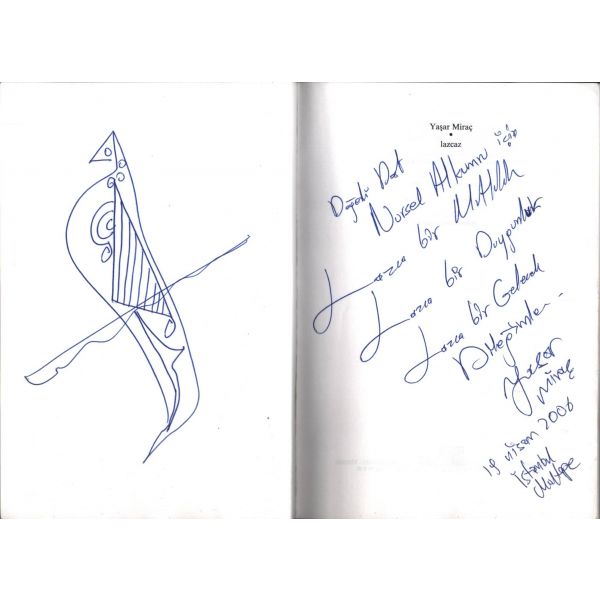 Yaşar Miraç
•
lazcaz
Değerli Dost
Nursel Alkumru için
Lazca bir Mutluluk
Lazca bir Duygunluk
Lazca bir Gelecek
Dileğimle -
Yaşar
Miraç
19 Nisan 2006
İstanbul
Maltepe